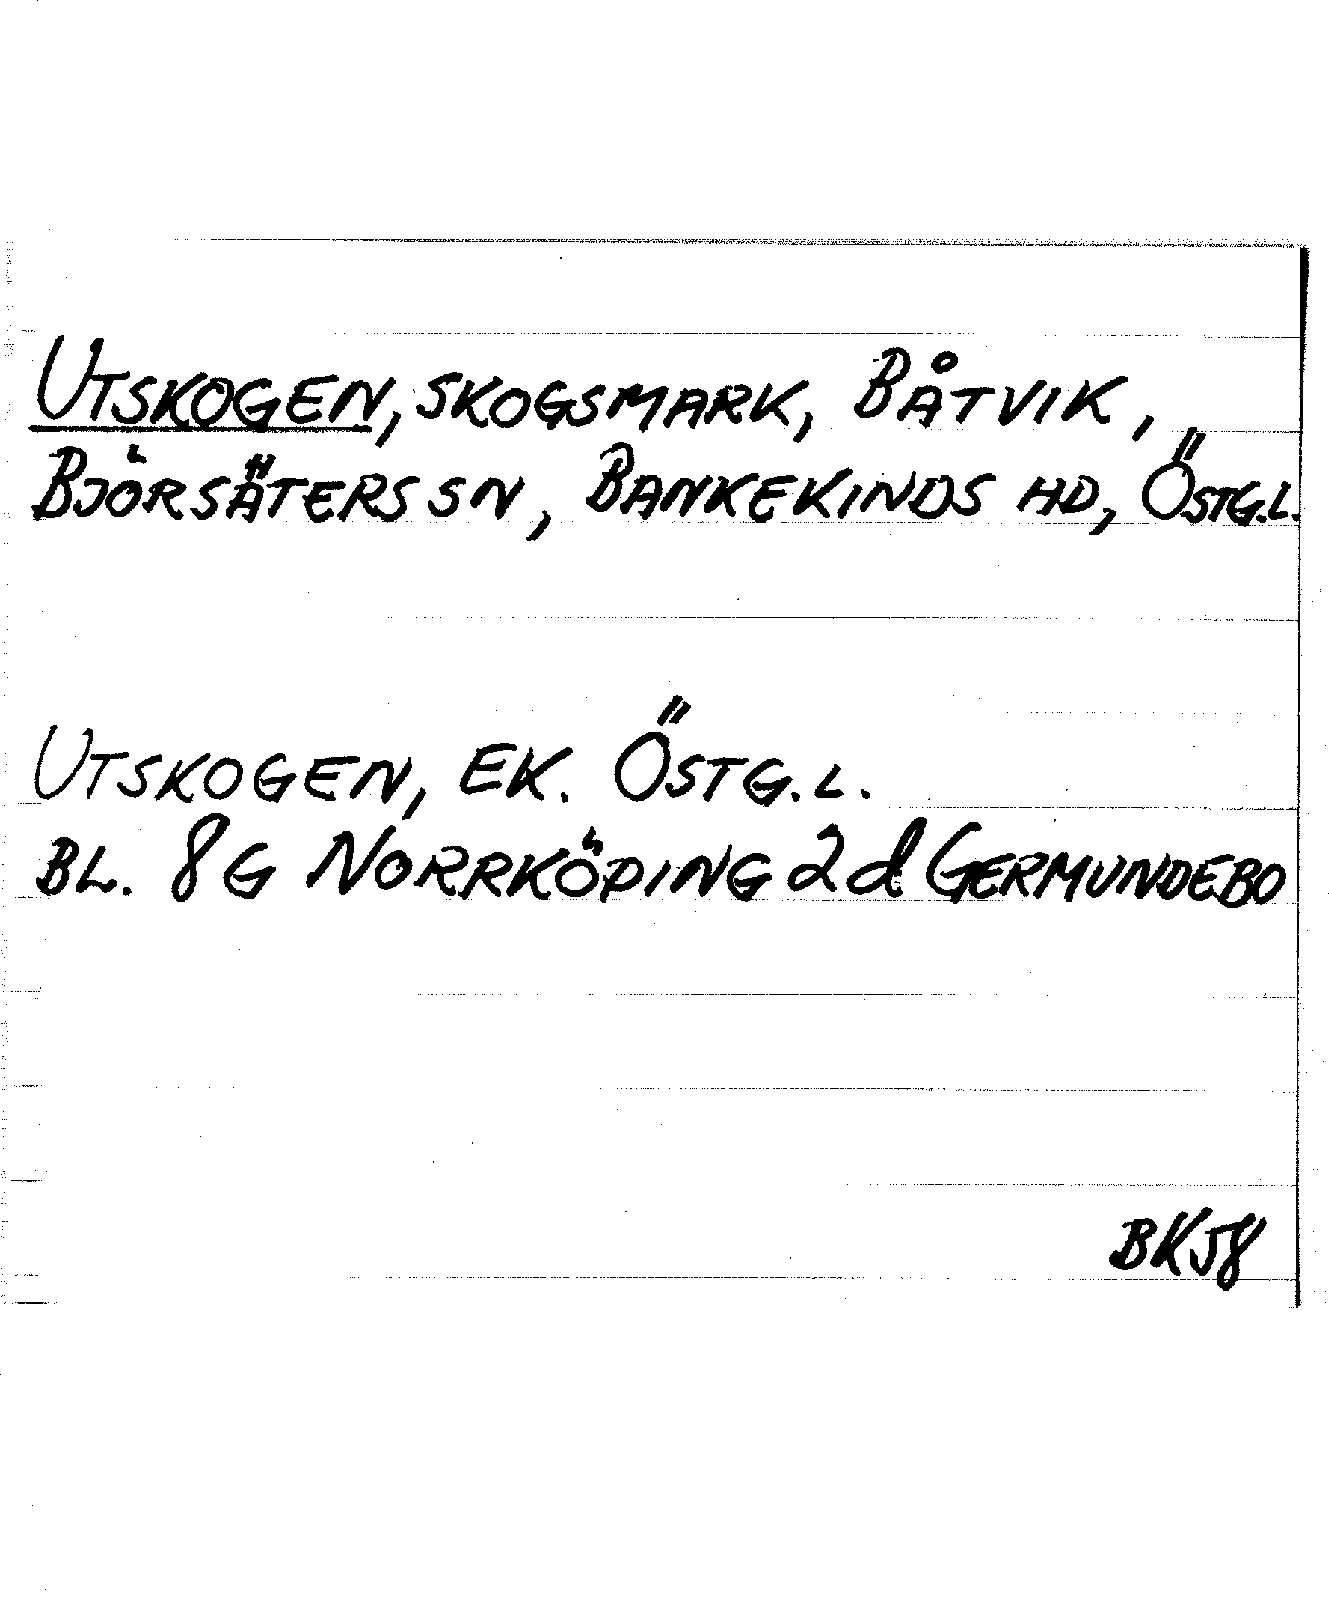 UTSKOGEN, SKOGSMARK, BÅTVIK,
BJÖRSÄTERS SN, BANKEKINDS HD, ÖSTG.L.
UTSKOGEN, EK. ÖSTG.L.
BL. 8G NORRKÖPING 2d GERMUNDEBO
BK58